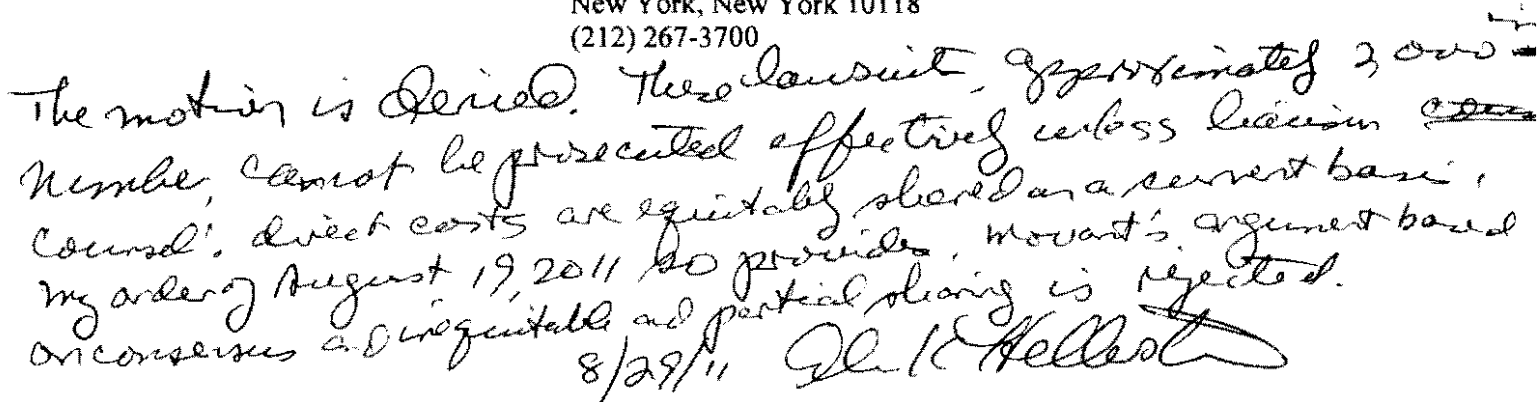 New York, New York 10118
(212) 267-3700
The motion is denied. These lawsuits, approximately 2,000 in
number, cannot be prosecuted effectively unless liaison
counsel's direct costs are equitably shared on a current basis.
My order of August 19, 2011 so provides. Movant's argument based
on consensus and inequitable and partial sharing is rejected.
8/29/11 Alvin K Hellerstein